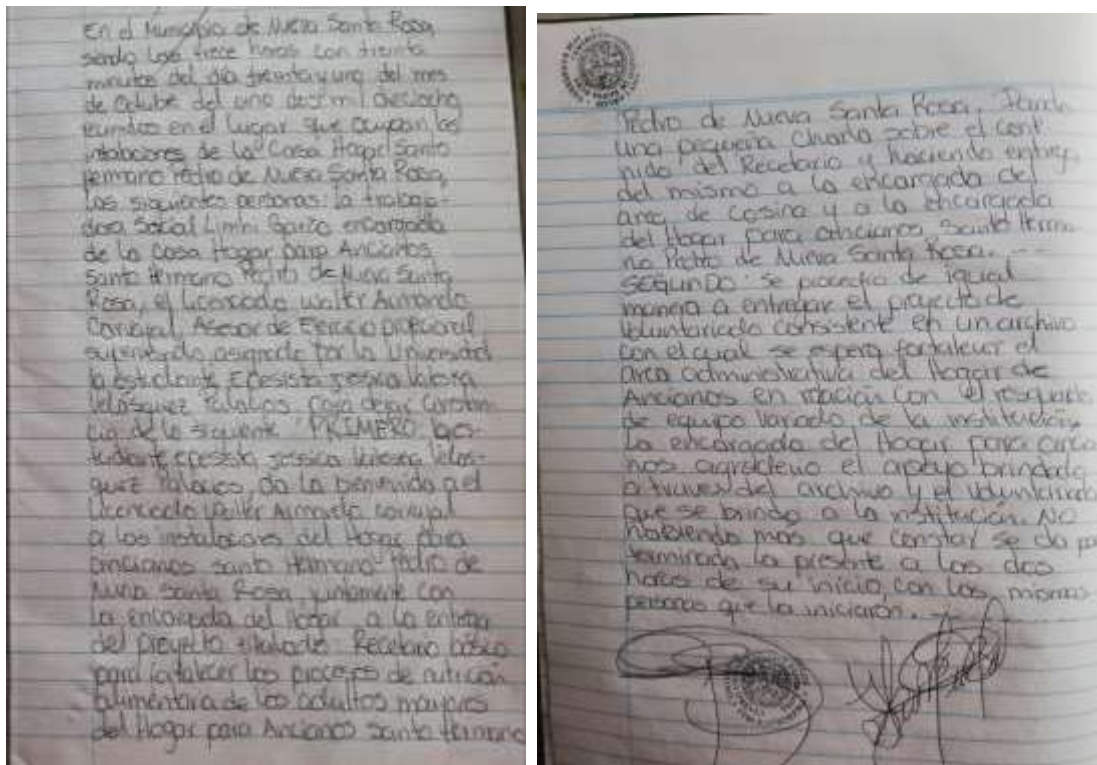 En el Municipio de Nueva Santa Rosa,
siendo las trece horas con treinta
minutos del día treinta y uno del mes
de Octubre del año dos mil dieciocho
reunidos en el lugar que ocupan las
intalaciones de la Casa Hogar Santo
Hermano Pedro de Nueva Santa Rosa,
las siguientes personas: la trabaja-
dora Social encargada
de la Casa Hogar para Ancianos
Santo Hermano Pedro de Nueva Santa
Rosa, el Licenciado Walter Armando
Carvajal, Asesor de Ejercicio profesional
supervisado asignado por la Universidad
la estudiante Epesista Jessica
Velásquez Palacios, para dejar constan-
cia de lo siguiente: PRIMERO: la es-
tudiante epesista Jessica Velas-
quez Palacios, da la bienvenida a el
Licenciado Walter Armando Carvajal
a las instalaciones del Hogar para
ancianos Santo Hermano Pedro de
Nueva Santa Rosa, juntamente con
la encargada del Hogar, a la entrega
del proyecto titulado: Recetario básico
para fortalecer los procesos de nutrición
alimentaria de los adultos mayores
del Hogar para Ancianos Santo Hermano
Pedro de Nueva Santa Rosa. Dando
una pequeña Charla sobre el conte
nido del Recetario y haciendo entrega
del mismo a la encargada del
area de cosina y a la encargada
del Hogar para ancianos Santo Herma
no Pedro de Nueva Santa Rosa. ---
SEGUNDO: Se procedio de igual
manera a entregar el proyecto de
Voluntariado consistente en un archivo
con el cual se espera fortalecer el
area administrativa del Hogar de
Ancianos en relación con el resguardo
de equipo variado de la institución
La encargada del Hogar para ancia
nos agradecio el apoyo brindado
a traves del archivo y el voluntariado
que se brindo a la institución. NO
habiendo mas que constar se da por
terminada la presente a las dos
horas de su inicio, con las mismas
personas que la iniciaron. --